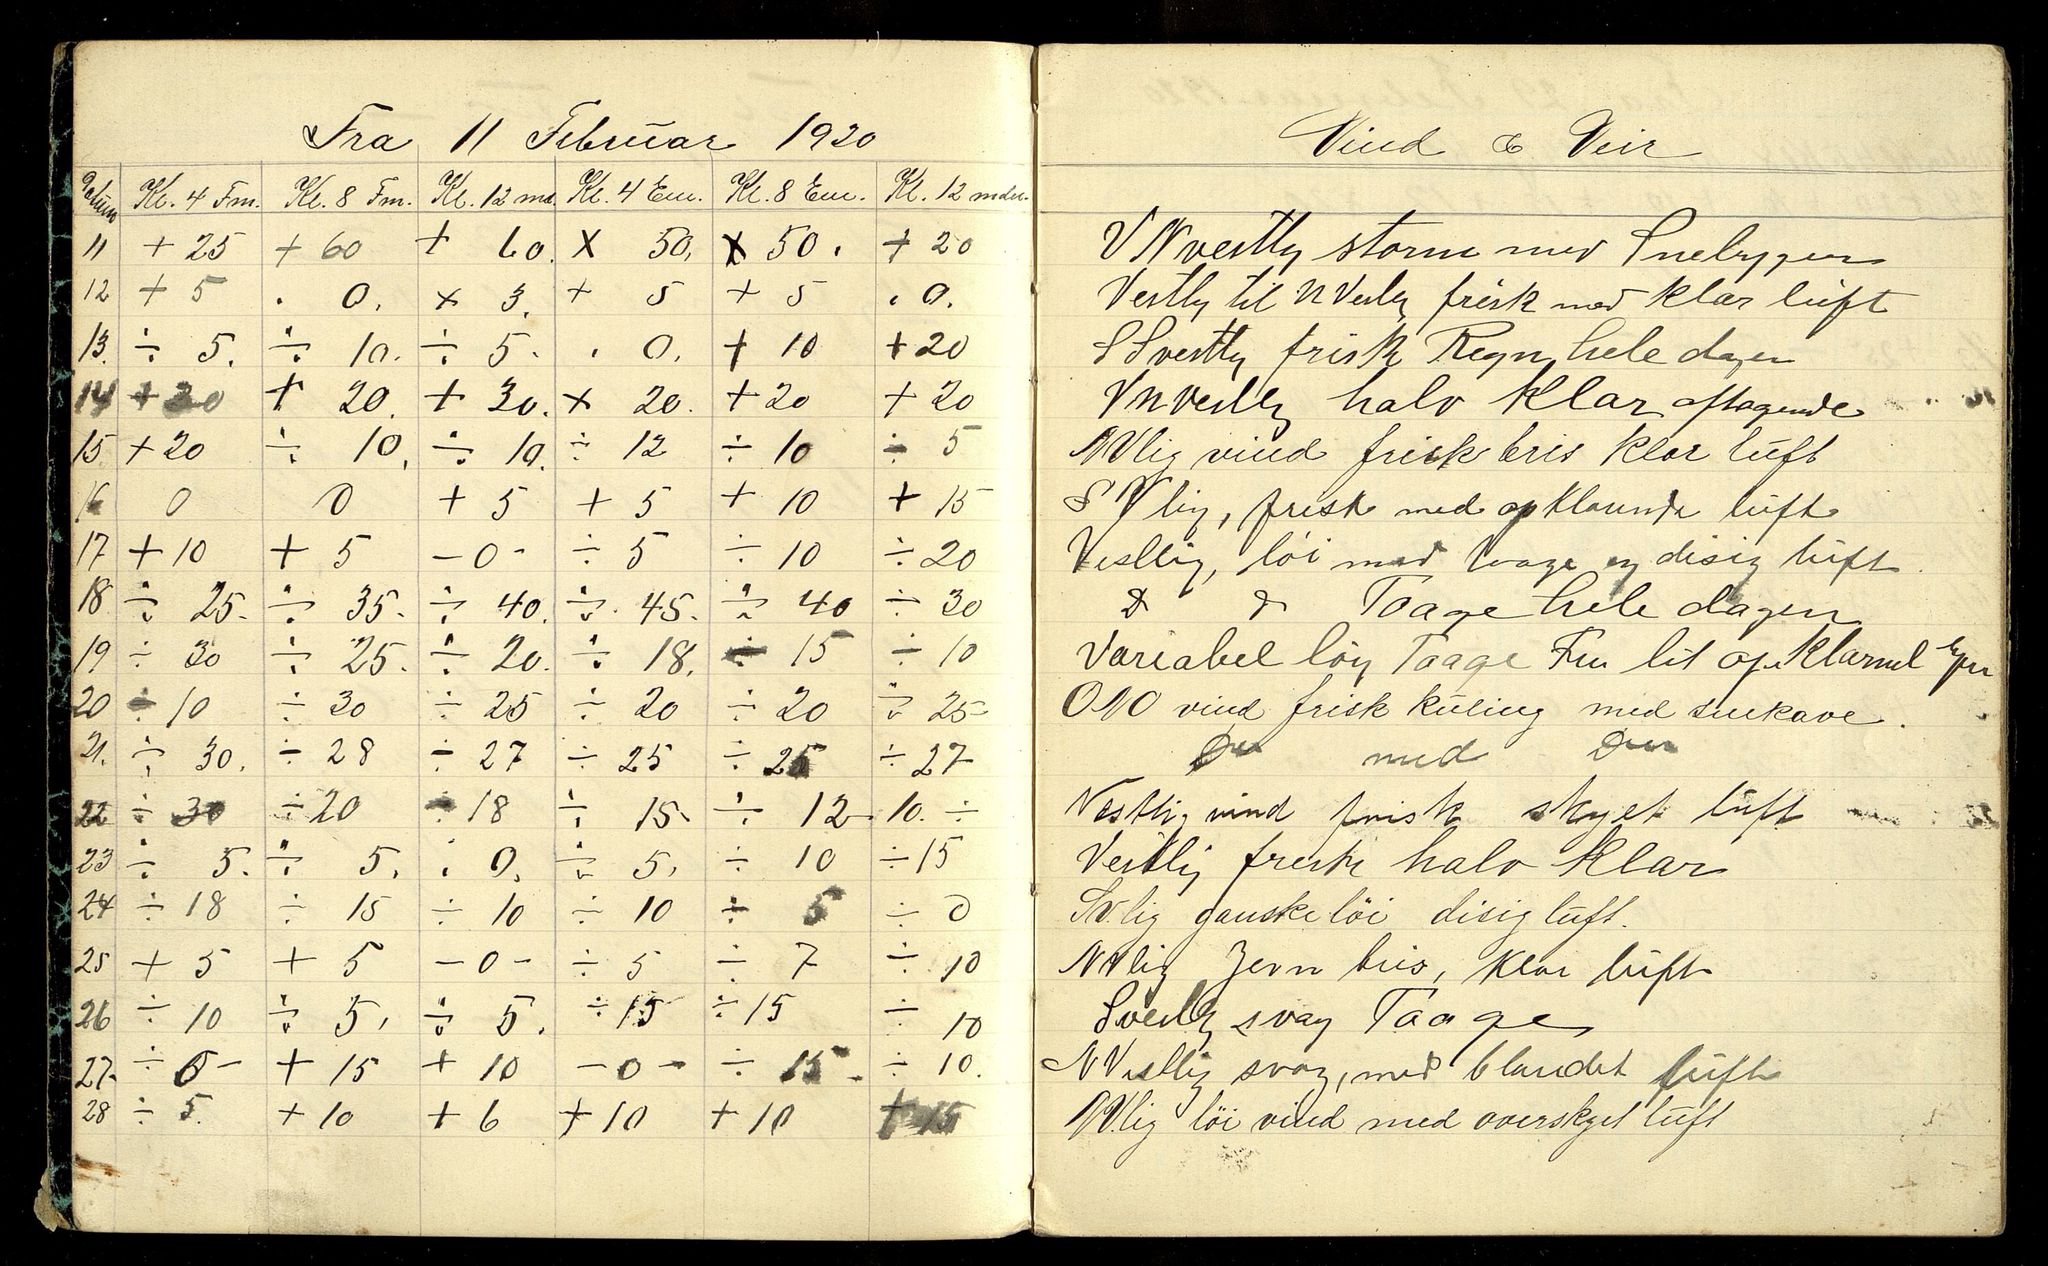 Fra 11 Februar 1920
Datum Kl. 4 Fm. Kl. 8 Fm. Kl. 12 md. Kl. 4 Em. Kl. 8 Em. Kl. 12 mdn.
11 + 25 + 60 + 60. + 50, + 50. + 20
12 + 5 . 0. + 3. + 5 + 5 . 0.
13. ÷ 5. ÷ 10. ÷ 5. . 0. + 10 + 20
14 + 20 + 20. + 30. + 20. + 20 + 20
15 + 20 ÷ 10. ÷ 10. ÷ 12 ÷ 10 ÷ 5
16 0 0 + 5 + 5 + 10 + 15
17 + 10 + 5 - 0 - ÷ 5 ÷ 10 ÷ 20
18 ÷ 25. ÷ 35. ÷ 40. ÷ 45. ÷ 40 ÷ 30
19 ÷ 30 ÷ 25. ÷ 20. ÷ 18. ÷ 15 ÷ 10
20 ÷ 10 ÷ 30 ÷ 25 ÷ 20 ÷ 20 ÷ 25
21. ÷ 30. ÷ 28 ÷ 27 ÷ 25 ÷ 25 ÷ 27
22 ÷ 30 ÷ 20 ÷ 18 ÷ 15 ÷ 12 10. ÷
23 ÷ 5. ÷ 5. . 0. ÷ 5. ÷ 10 ÷ 15
24 ÷ 18 ÷ 15 ÷ 10 ÷ 10 ÷ 5 ÷ 0
25 + 5 + 5 - 0 - ÷ 5 ÷ 7 ÷ 10
26 ÷ 10 ÷ 5. ÷ 5. ÷ 15 ÷ 15 ÷ 10
27 ÷ 5 - + 15 + 10 - 0 - ÷ 15 ÷ 10.
28 ÷ 5. + 10 + 6 + 10 + 10 + 15
Vind & Veir
VNvestly storm med Snebyger
Vestly til NVestly frisk med klar luft
SSvestly frisk Regn hele dagen
VNvestly halv Klar aftagende
NVlig vind frisk bris klar luft
SVlig, frisk med opklarende luft
Vestlig, löi med taage og disig luft
Taage hele dagen
Variabel löy Taage Fm lit opklarnet
ONO vind frisk kuling med snekave.
Do med Do
Vestlig vind frisk skyet luft
Vestlig frisk halv klar
SV.lig ganske löi disig luft.
NVlig Jevn bris, klar luft
Svestly svag Taage
NVestlig svag, med blandet luft
NV.lig löi vind med overskyet luft